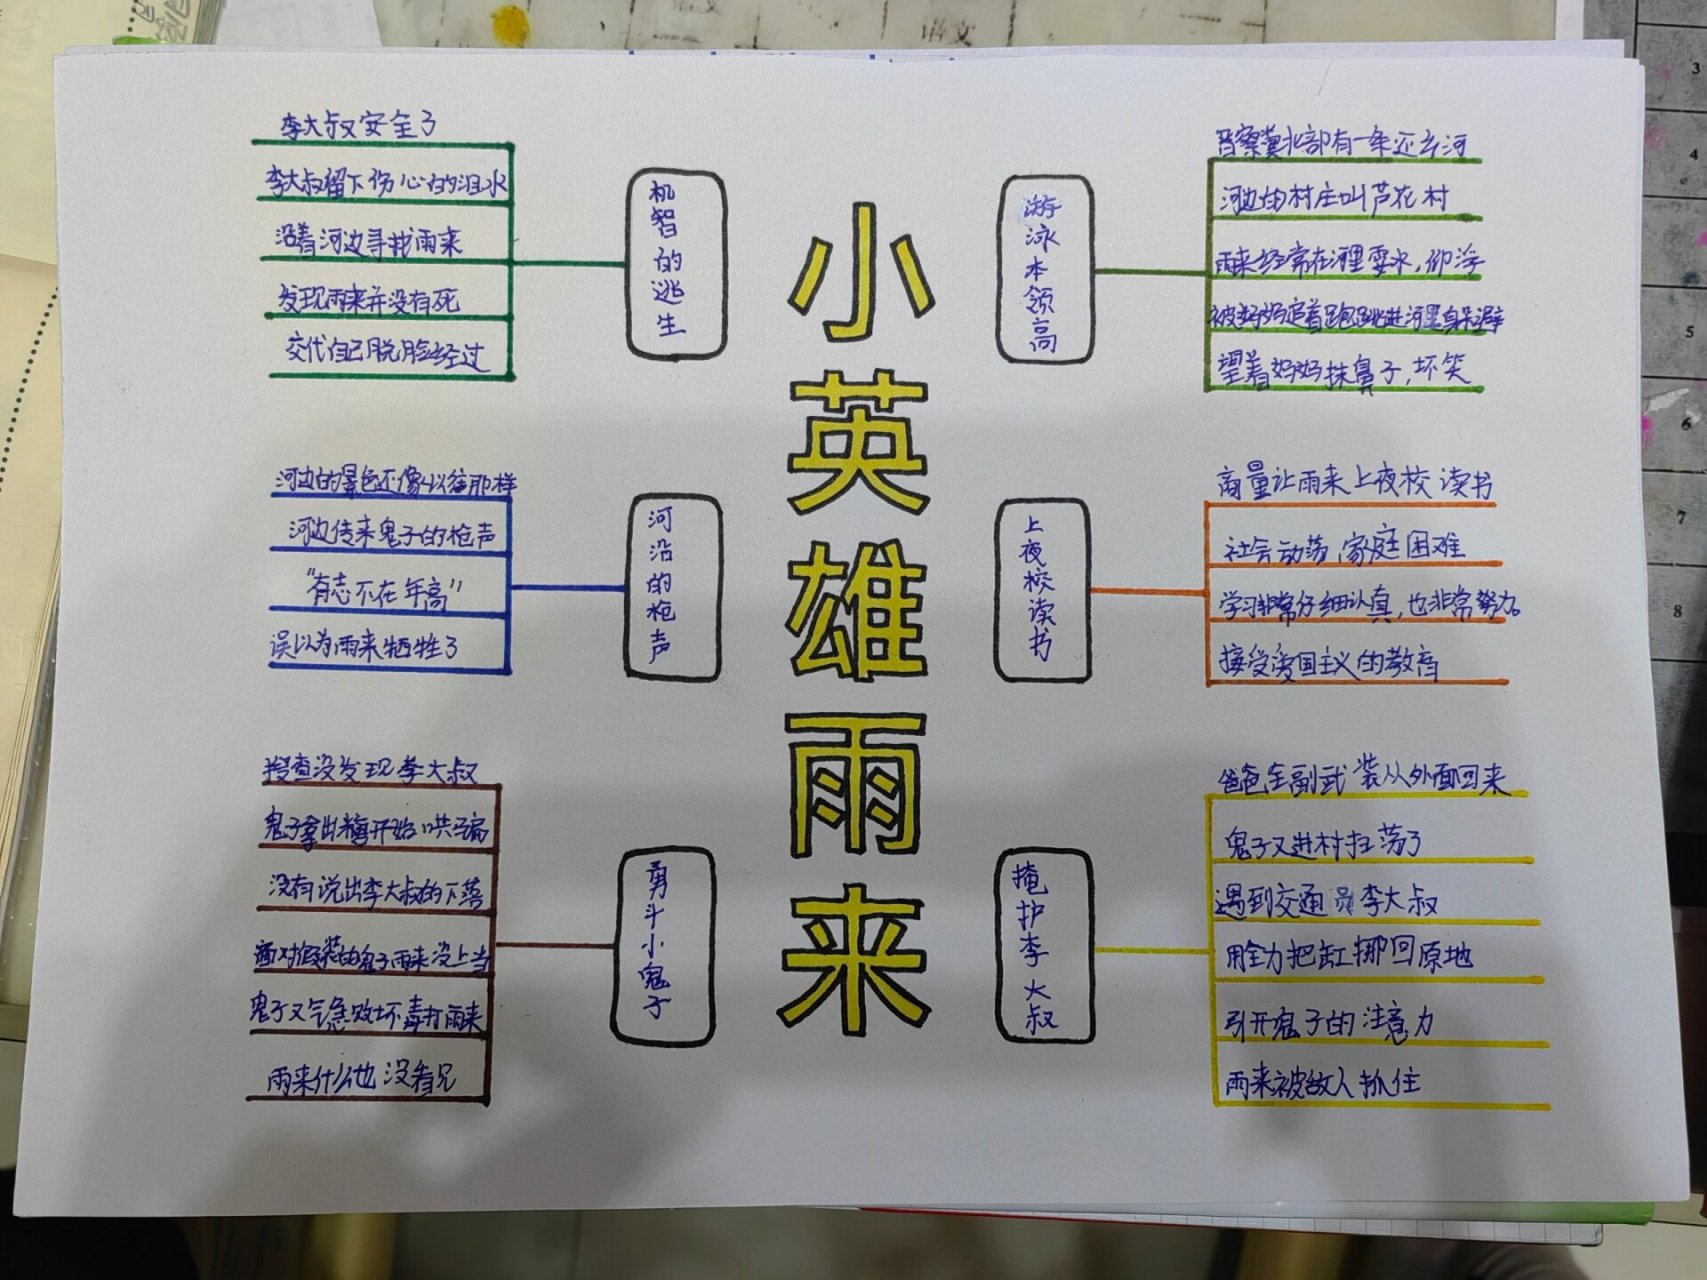 小英雄雨来
游泳本领高
晋察冀北部有一条还乡河
河边的村庄叫芦花村
雨来经常在河里耍水,仰浮
被妈妈追着跑跳进河里躲避
望着妈妈抹鼻子,坏笑
上夜校读书
商量让雨来上夜校读书
社会动荡,家庭困难
学习非常仔细认真,也非常努力。
接受爱国主义的教育
掩护李大叔
爸爸全副武装从外面回来
鬼子又进村扫荡了
遇到交通员李大叔
用全力把缸挪回原地
引开鬼子的注意力
雨来被敌人抓住
勇斗小鬼子
搜查没发现李大叔
鬼子拿出糖开始哄骗
没有说出李大叔的下落
面对假装的鬼子雨来没上当
鬼子又气急败坏毒打雨来
雨来什么也没看见
河沿的枪声
河边的景色还像以往那样
河边传来鬼子的枪声
“有志不在年高”
误以为雨来牺牲了
机智的逃生
李大叔安全了
李大叔留下伤心的泪水
沿着河边寻找雨来
发现雨来并没有死
交代自己脱险经过
语文
3
4
5
6
7
8